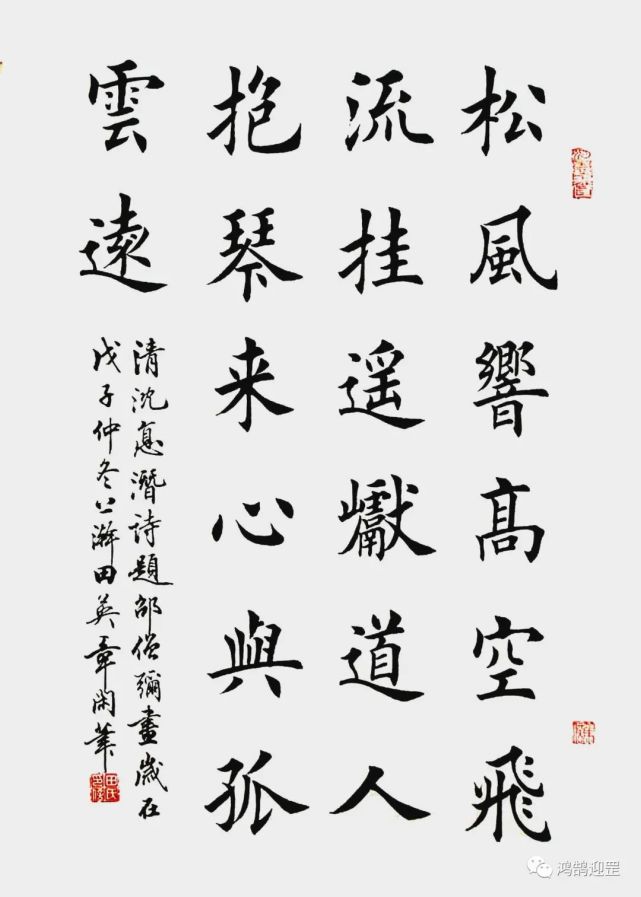 松風響髙空飛
流挂遥巘道人
抱琴来心與孤
雲遠
清沈惪潛詩題邵僧彌畫歲在
戊子仲冬田英章閑筆
鸿鹄迎罡